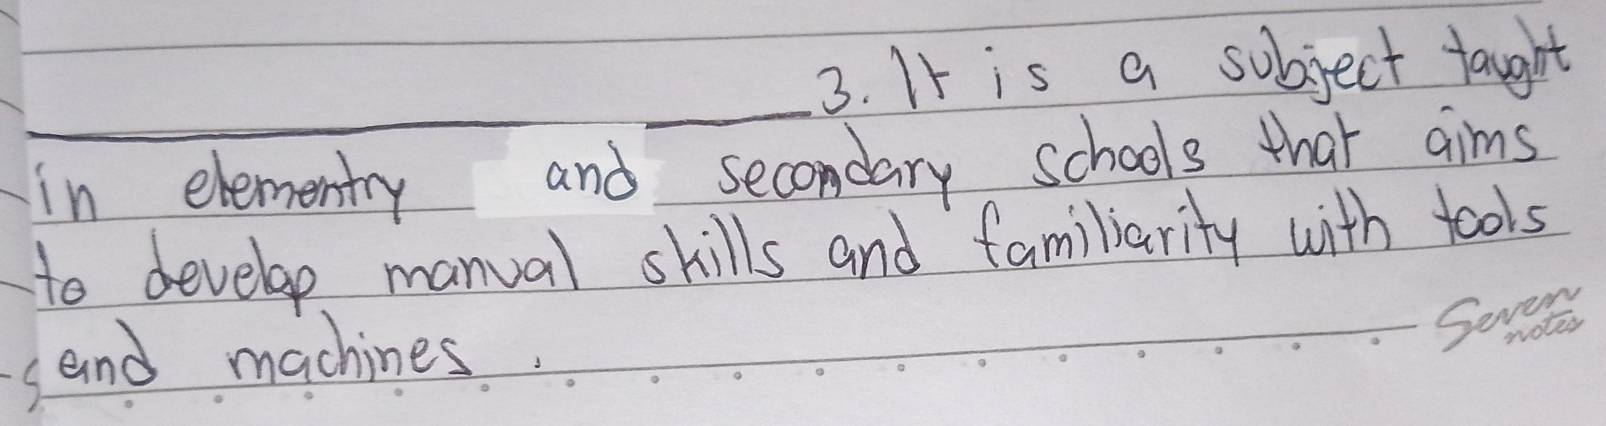 3. It is a subject taught
in elementry and secondary schools that aims
to develop manual skills and familiarity with tools
and machines.
Seven
notes